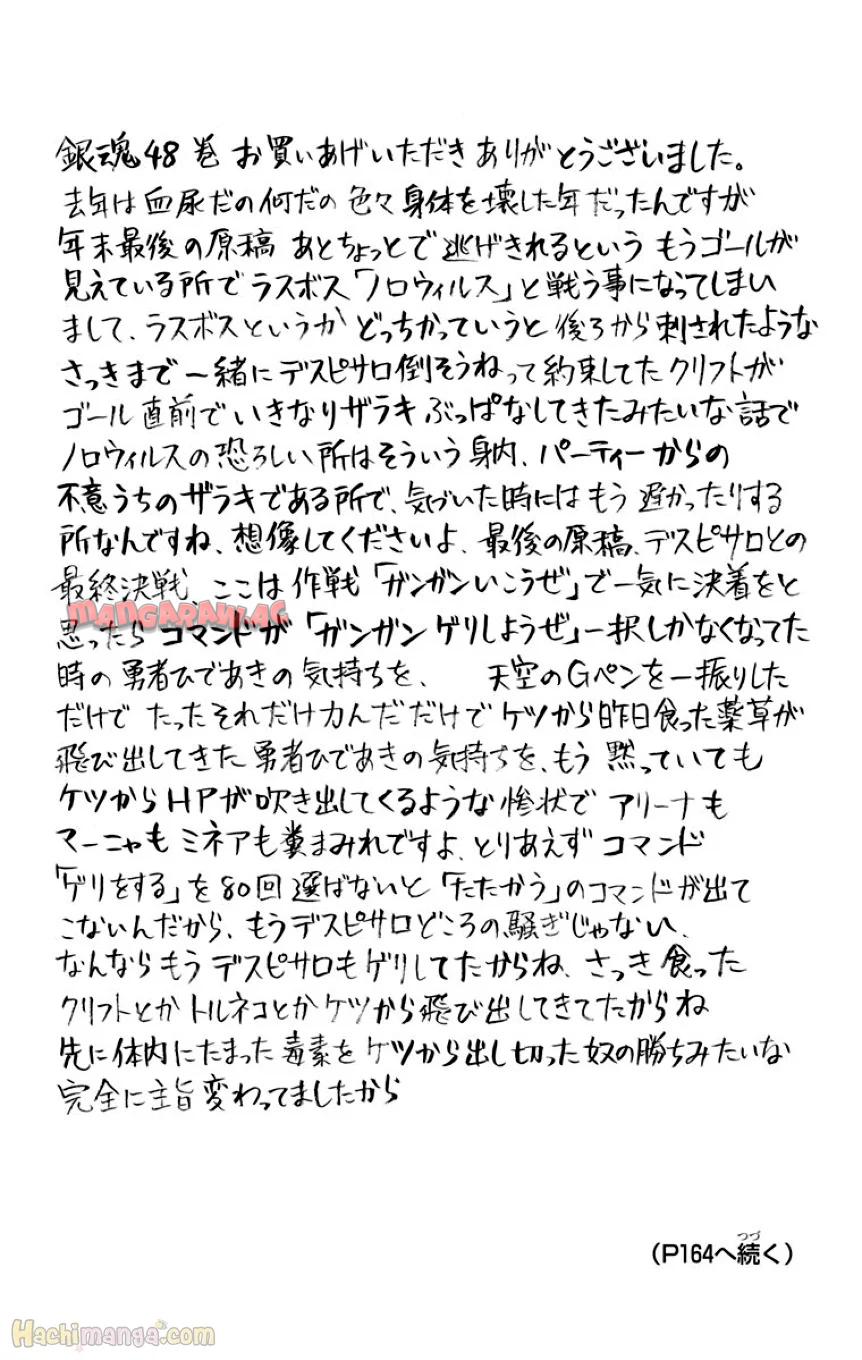 銀魂48巻 お買いあげいただき ありがとうございました。
去年は血尿だの何だの色々身体を壊した年だったんですが
年末最後の原稿 あとちょっとで逃げきれるという もうゴールが
見えている所でラスボス「ノロウィルス」と戦う事になってしまい
まして、ラスボスというか どっちかっていうと後ろから刺されたような
さっきまで一緒にデスピサロ倒そうねって約束してたクリフトが
ゴール直前でいきなりザラキぶっぱなしてきたみたいな話で
ノロウィルスの恐ろしい所はそういう身内、パーティーからの
不意うちのザラキである所で、気づいた時にはもう遅かったりする
所なんですね、想像してくださいよ、最後の原稿、デスピサロとの
最終決戦 ここは作戦「ガンガンいこうぜ」で一気に決着をと
MANGARAW.AC
思ったらコマンドが「ガンガンゲリしようぜ」一択しかなくなってた
時の勇者ひであきの気持ちを、 天空のGペンを一振りした
だけで たったそれだけ力んだだけでケツから昨日食った薬草が
飛び出してきた勇者ひであきの気持ちを、もう黙っていても
ケツからHPが吹き出してくるような惨状で アリーナも
マーニャもミネアも糞まみれですよ、とりあえずコマンド
「ゲリをする」を80回選ばないと「たたかう」のコマンドが出て
こないんだから、もうデスピサロどころの騒ぎじゃない、
なんならもうデスピサロもゲリしてたからね、さっき食った
クリフトとかトルネコとかケツから飛び出してきてたからね
先に体内にたまった毒素をケツから出し切った奴の勝ちみたいな
完全に主旨変わってましたから
(P164へ続く)
つづ
Hachimanga.com